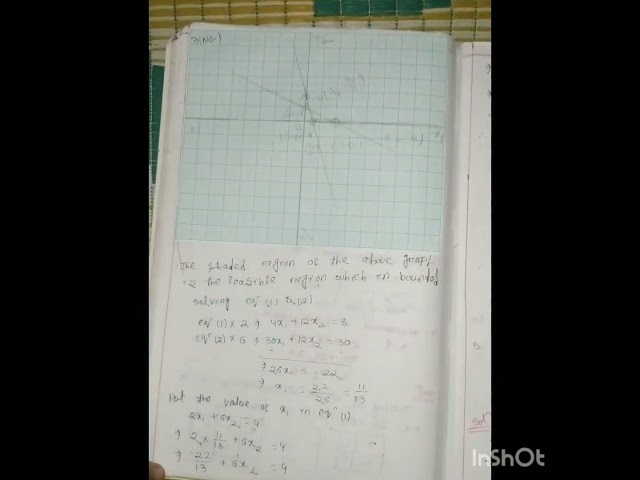 3(NO.)
The shaded region of the above graph
is the feasible region which in bounded
solving eqⁿ (1) & (2)
eqⁿ (1) × 2 ⇒ 4x₁ + 12x₂ = 8
eqⁿ (2) × 6 ⇒ 30x₁ + 12x₂ = 30
⇒ 26x₁ = 22
⇒ x₁ = 22/26 = 11/13
Put the value of x₁ in eqⁿ (1)
2x₁ + 6x₂ = 4
⇒ 2 × 11/13 + 6x₂ = 4
⇒ 22/13 + 6x₂ = 4
InShOt